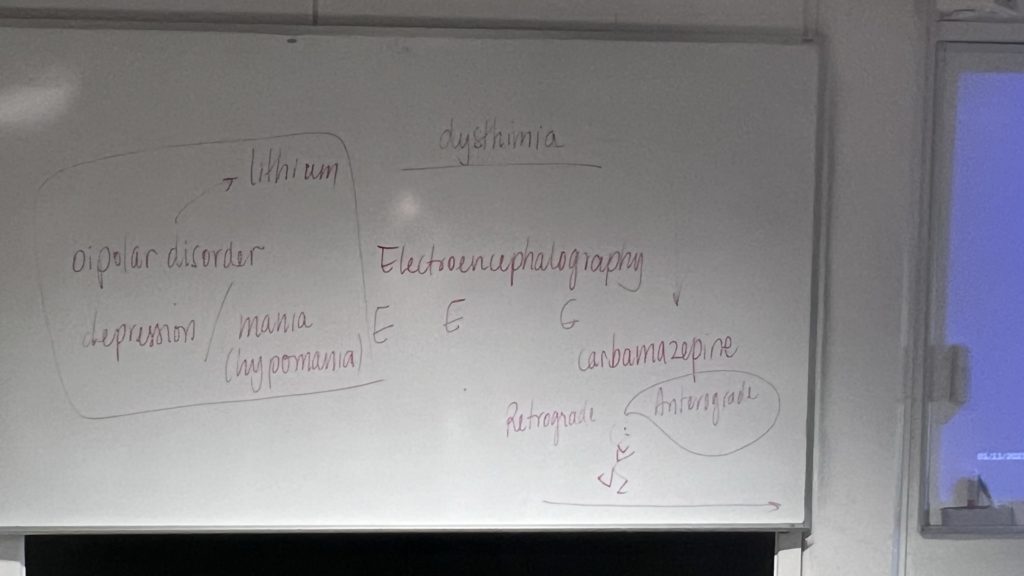 dysthimia
lithium
bipolar disorder
depression / mania
(hypomania)
Electroencephalography
E E G
carbamazepine
Retrograde
Anterograde